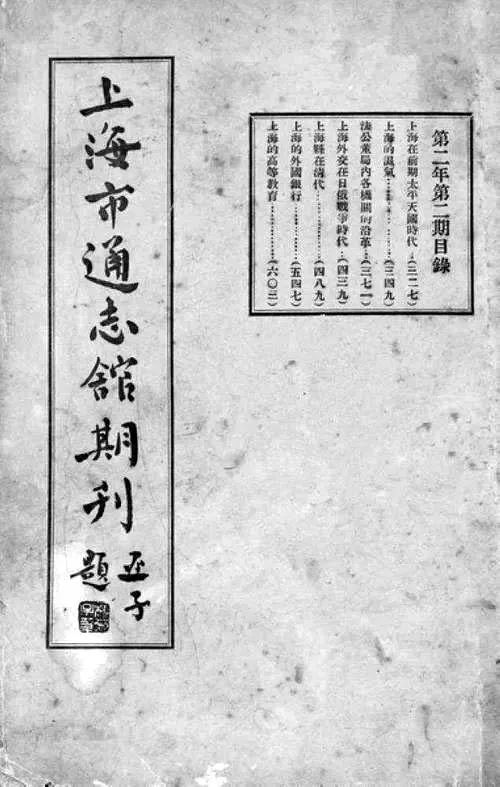 第二年第二期目錄
上海在前期太平天國時代…(三二七)
上海的濕氣…………(三四九)
法公董局內各機關的沿革…(三七一)
上海外交在日俄戰爭時代…(四三九)
上海縣在清代…………(四八九)
上海的外國銀行…………(五四七)
上海的高等教育…………(六〇三)
上海市通志館期刊
亞子
題